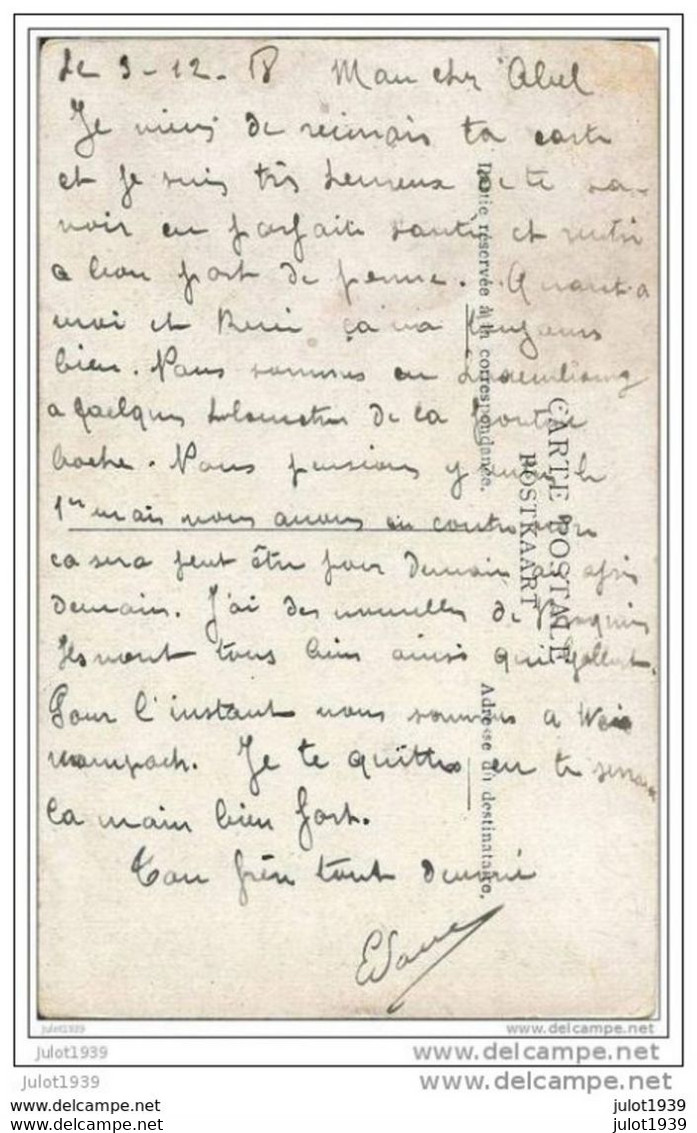 Le 3-12-18 Mon cher Abel
Je viens de recevoir ta carte
et je suis très heureux de te sa-
voir en parfaite santé et
a bon port de . Quant a
moi et ça va toujours
bien. Nous sommes en Luxembourg
a quelques kilometres de la frontière
boche. Nous pensions y être le
1er mais nous avons eu contre ordre
ca sera peut être pour demain ou après
demain. J'ai des nouvelles de
Ils vont tous bien ainsi que
Pour l'instant nous sommes a Weis
wampach. Je te quitte en te serrant
la main bien fort.
Ton frère tout dévoué
Partie réservée à la correspondance.
CARTE POSTALE
POSTKAART
Adresse du destinataire.
julot1939
www.delcampe.net
julot1939
www.delcampe.net
julot1939
www.delcampe.net
www.delcampe.net
julot1939
www.delcampe.net
julot1939